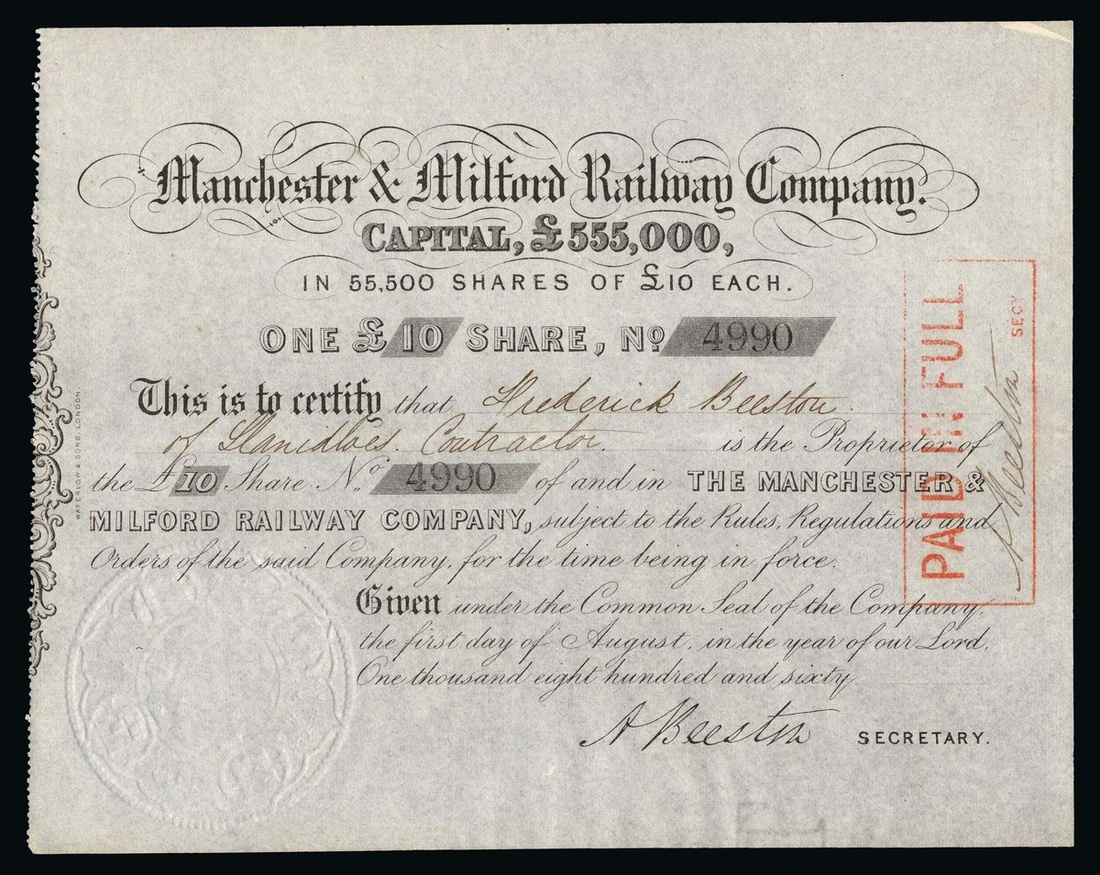 Manchester & Milford Railway Company.
CAPITAL, £555,000,
IN 55,500 SHARES OF £10 EACH.
ONE £10 SHARE, No 4990
This is to certify that Frederick Beeston
of Llanidloes. Contractor. is the Proprietor of
the £10 Share No. 4990 of and in THE MANCHESTER &
MILFORD RAILWAY COMPANY, subject to the Rules, Regulations and
Orders of the said Company, for the time being in force.
Given under the Common Seal of the Company,
the first day of August, in the year of our Lord,
One thousand eight hundred and sixty
A Beeston SECRETARY.
PAID IN FULL
A Beeston SECY
WATERLOW & SONS, LONDON.